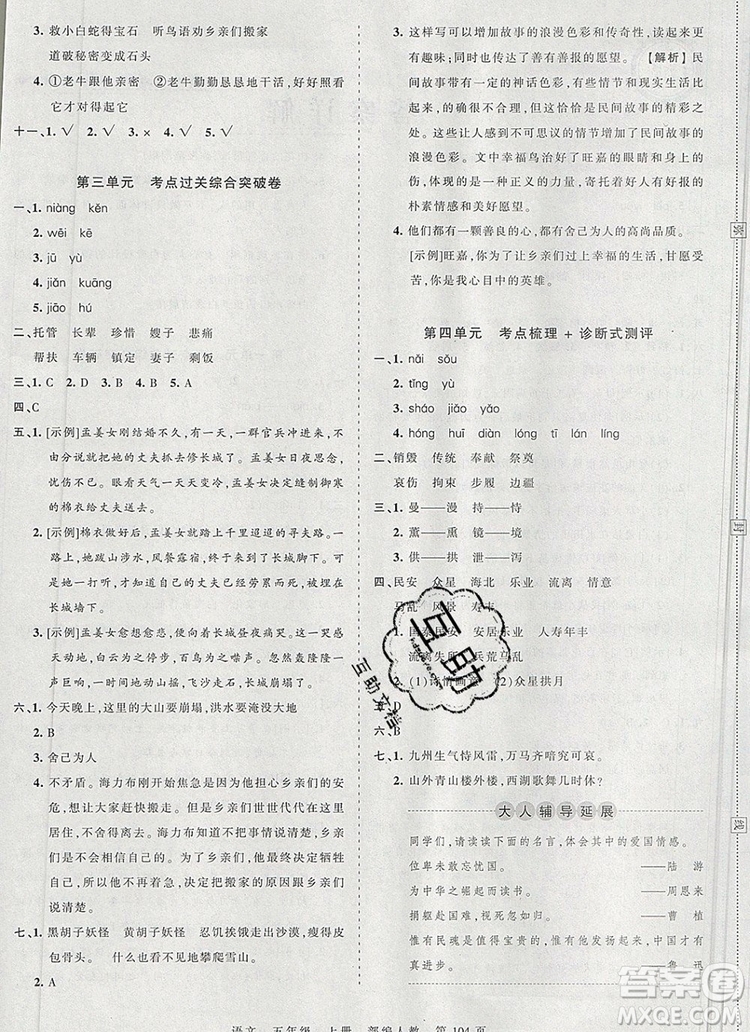 3. 救小白蛇得宝石　听鸟语劝乡亲们搬家
道破秘密变成石头
4. ①老牛跟他亲密　②老牛勤勤恳恳地干活，
它才对得起它
十一、1. √　2. √　3. ×　4. √　5. √
第三单元　考点过关综合突破卷
一、1. niàng　kěn
2. wēi　kē
3. jū　yù
4. jiǎn　kuāng
5. jiāo　hú
二、托管　长辈　珍惜　嫂子　悲痛
帮扶　车辆　镇定　妻子　剩饭
三、1. C　2. A　3. D　4. B　5. A
四、C
五、1. [示例]孟姜女刚结婚不久，有一天，一群官兵冲进来，不由
分说就把她的丈夫抓去修长城了。孟姜女日夜思念，
忧伤不已。眼看天气一天天变冷，孟姜女亲手缝制
的棉衣给丈夫送去。
2. [示例]棉衣做好后，孟姜女就踏上千里迢迢的寻夫路。一
路上，她跋山涉水，风餐露宿，历尽艰辛来到了长城脚下。
她一打听，才知道自己的丈夫已经劳累而死，尸骨埋在
长城墙下。
3. [示例]孟姜女愈想愈悲伤，就向着长城昼夜痛哭。直哭得
天愁地惨，白云为之停步，百鸟为之噤声。忽然轰隆隆一
声巨响，一时间地动山摇，飞沙走石，长城崩塌了。
六、1. 今天晚上，这里的大山要崩塌，洪水要淹没大地
2. B
3. 舍己为人
4. 不矛盾。海力布刚开始焦急是因为他担心乡亲们的安
危，想要大家赶快搬走。而乡亲们因为世世代代在这里
居住，所以不愿意离开。海力布知道不说清楚，乡亲
们是不会搬家的。为了乡亲们，他最终镇定下来，从
头到尾把事情说清楚。海力布的镇定和焦急都是为
了救乡亲们，只是镇定的时候已经决定牺牲自己，把话
说清楚。
七、1. 黑胡子妖怪　黄胡子妖怪　忍饥挨饿走出沙漠，瘦得只有皮
包骨头。　冒着严寒，不知疲倦地攀爬雪山。
2. A
3. 这样写可以增添故事的浪漫色彩和传奇性，使内容更
有趣味；同时也表达了善有善报的愿望。　[解析]民
间故事有一定的神话色彩，有些情节特别夸张，有些
情节根本不合理，但这也正是民间故事的精彩之处。
这会让人感到不可思议的情节增加了民间故事的
浪漫色彩。文中吉祥鸟治好了旺嘉，是作者对旺嘉的
善心和奉献的一种奖励，也体现了人们好人有好报的
朴素情感和美好愿望。
4. 他们都有一颗善良的心，和舍己为人的高尚品质。
[示例]旺嘉，你真伟大！你为了让乡亲们过上幸福生活，甘愿受
苦，你是我心目中的英雄。
第四单元　考点梳理 + 诊断式测评
一、1. nǎi　sǒu
2. tīng　yù
3. sháo　jiāo　yāo
4. hóng　huī　diàn　lóng　tī　lán　líng
二、销毁　传统　奉献　祭奠
哀伤　拘束　岁晚　边疆
三、1. 曼——漫　持——恃
2. 薰——熏　镜——境
3. 供——拱　泄——泻
四、民安　众星　海北　乐业　流离　情意
马乱　风景　寿丰
1. 国泰民安　安居乐业　人寿年丰
流离失所　兵荒马乱
2. (1)诗情画意　(2)众星拱月
D
六、B
七、1. 九州生气恃风雷，万马齐喑究可哀。
2. 山外青山楼外楼，西湖歌舞几时休？
大人辅导延展
同学们，请读读下面的名言，体会其中的爱国情感。
位卑未敢忘忧国。　——陆　游
为中华之崛起而读书。　——周恩来
捐躯赴国难，视死忽如归。　——曹　植
惟有民魂是值得宝贵的，惟有他发扬起来，中国才有
真进步。　——鲁　迅
语文　五年级　上册　部编人教　第 104 页
弥
封
线
互助
互助文档
答案圈
MXQE.COM